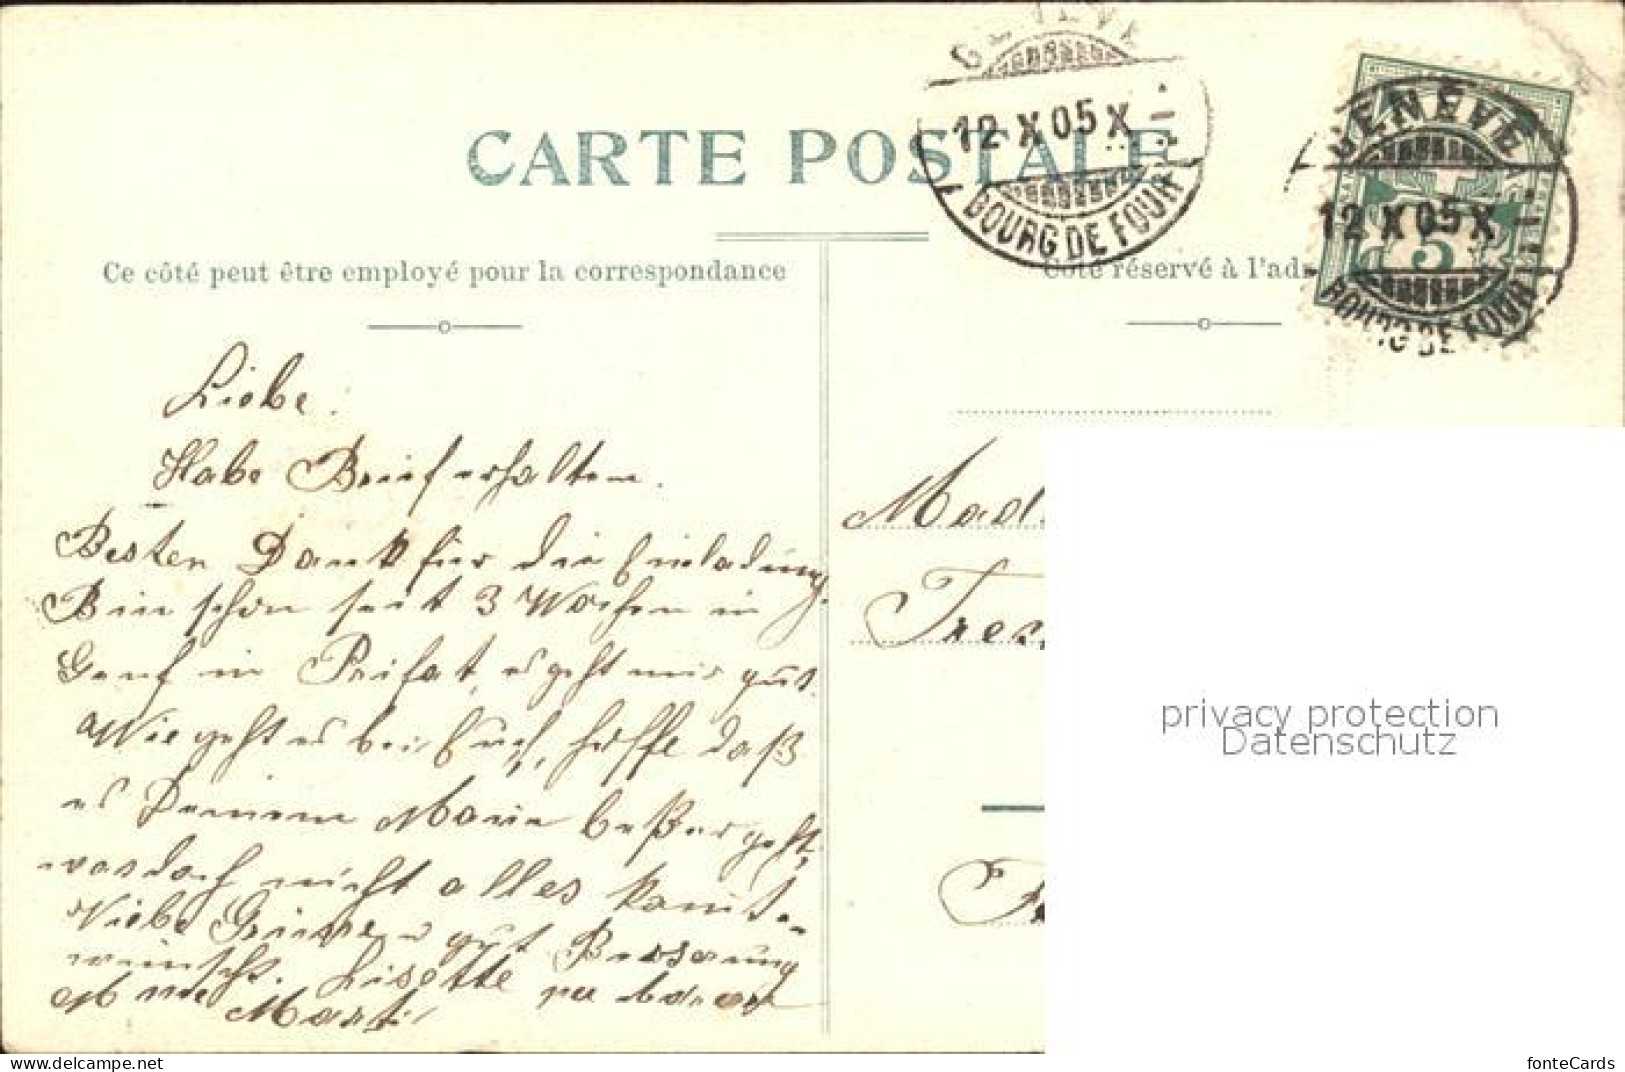 GENÈVE
12 X 05 X
BOURG DE FOUR
GENÈVE
12 X 05 X
BOURG DE FOUR
5
CARTE POSTALE
Ce côté peut être employé pour la correspondance
Côté réservé à l'adr
Liebe.
Habe Brief erhalten.
Besten Dank für die Einladung
Bin schon seit 3 Wochen in
Genf in Prifat, es geht mir gut.
Wie geht es bei Euch, hoffe daß
es Deinem Marie beßer geht,
was doch nicht alles kam
Liebe Grüsse u gut Besserung
wünscht. Lisette
Mme Marti
Mad
Tres
privacy protection
Datenschutz
www.delcampe.net
fonteCards